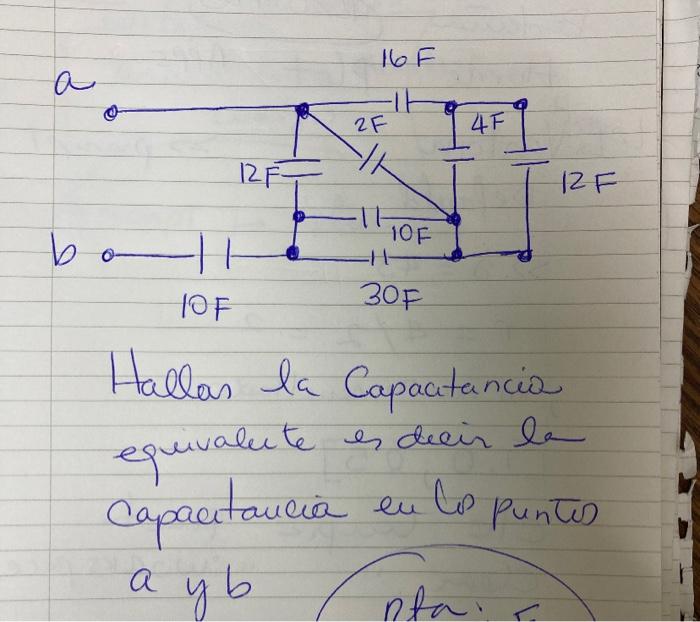 16F
a
2F
4F
12F
12F
10F
b
10F
30F
Hallar la Capacitancia
equivalente es decir la
capacitancia en los puntos
a y b